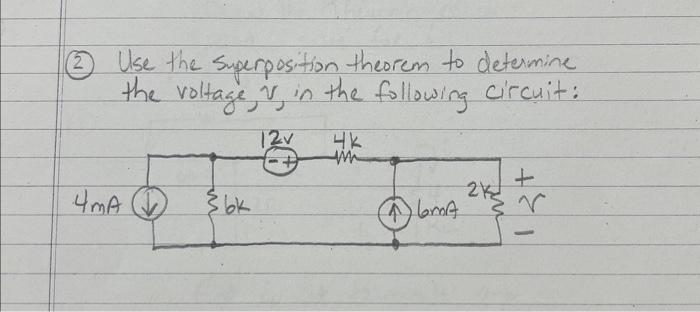 ② Use the superposition theorem to determine
the voltage, v, in the following circuit:
12V 4K
- +
4mA 6K 6mA 2K + v -